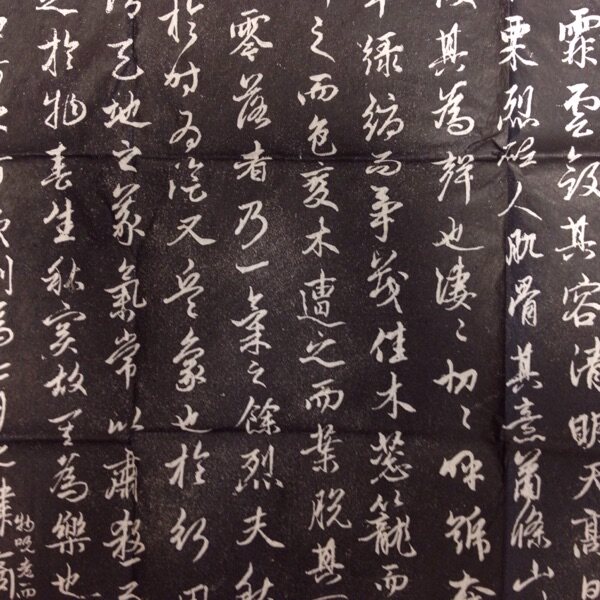 霏雲斂其容清明天高日
栗烈砭人肌骨其意蕭條山
其為聲也淒〻切〻呼號奮
草綠縟而爭茂佳木葱籠而
之而色變木遭之而葉脫其
零落者乃一氣之餘烈夫秋
於時為陰又兵象也於行用
謂天地之義氣常以肅殺而
之於物春生秋實故其為樂也
則為七月之律商
物既老而